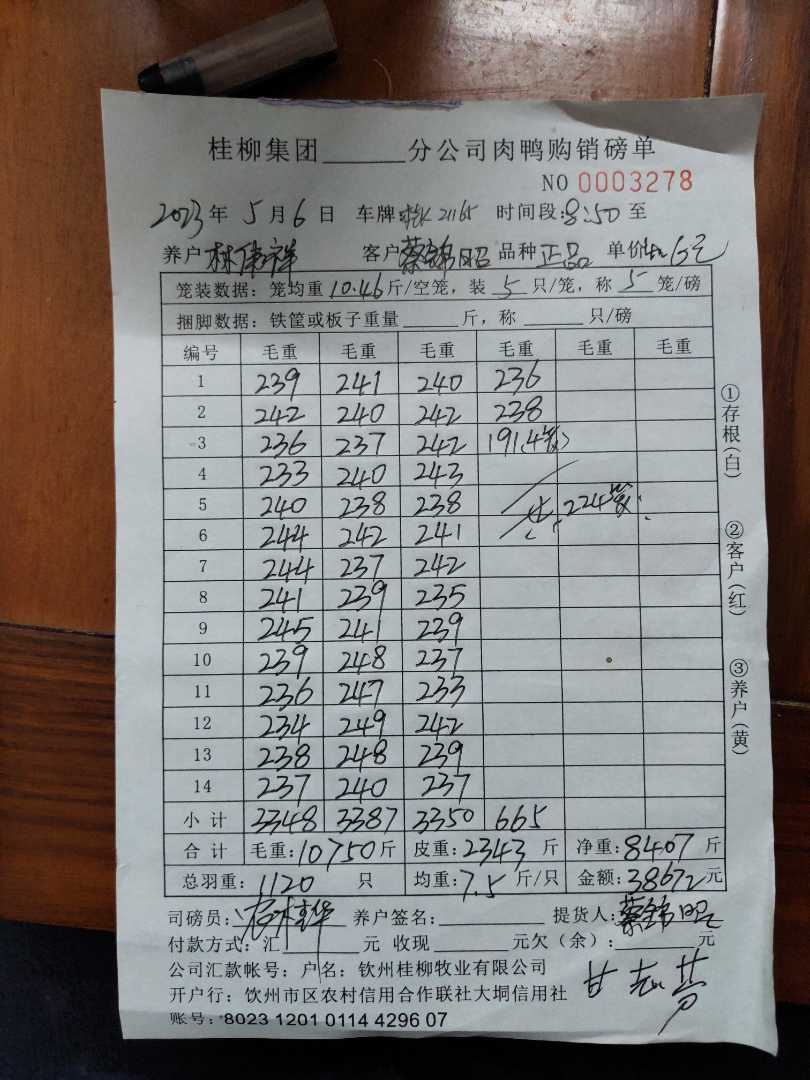 桂柳集团______分公司肉鸭购销磅单
NO 0003278
2023年 5月6日 车牌 21165 时间段:8:50至
养户 林伟祥 客户 蔡锦昭 品种 正品 单价
笼装数据：笼均重10.46斤/空笼，装5只/笼，称5笼/磅
捆脚数据：铁筐或板子重量______斤，称______只/磅
编号 毛重 毛重 毛重 毛重 毛重 毛重
1 239 241 240 236
2 242 240 242 238
3 236 237 242 191(4笼)
4 233 240 243
5 240 238 238 共224笼
6 244 242 241
7 244 237 242
8 241 239 235
9 245 241 239
10 239 248 237
11 236 247 233
12 234 249 242
13 238 248 239
14 237 240 237
小计 3348 3387 3350 665
合计 毛重:10750斤 皮重:2343斤 净重:8407斤
总羽重:1120只 均重:7.5斤/只 金额:38672元
司磅员: 养户签名:______ 提货人:蔡锦昭
付款方式:汇______元 收现______元欠(余):______元
公司汇款帐号：户名：钦州桂柳牧业有限公司
开户行：饮州市区农村信用合作联社大垌信用社
账号：8023 1201 0114 4296 07
①存根(白)
②客户(红)
③养户(黄)